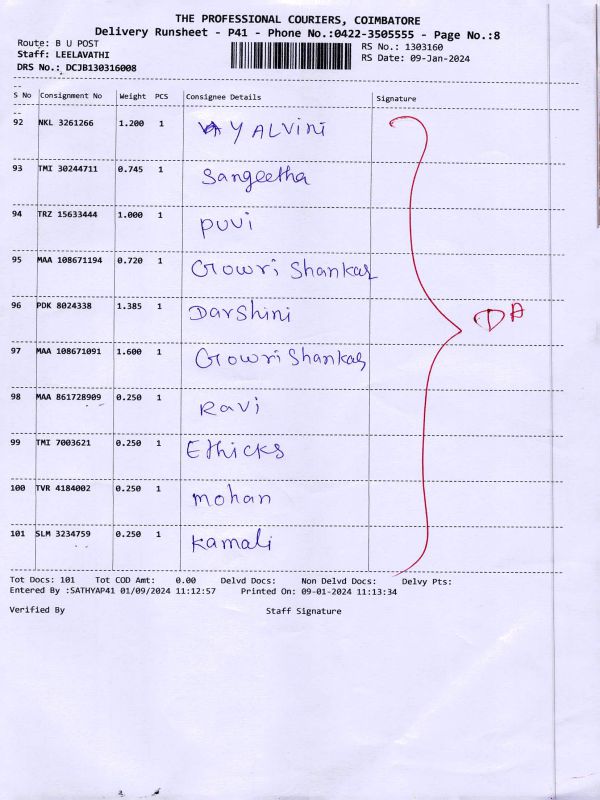 THE PROFESSIONAL COURIERS, COIMBATORE
Delivery Runsheet - P41 - Phone No.:0422-3505555 - Page No.:8
Route: B U POST
RS No.: 1303160
Staff: LEELAVATHI
RS Date: 09-Jan-2024
DRS No.: DCJB130316008
S No Consignment No Weight PCS Consignee Details Signature
92 NKL 3261266 1.200 1 YALVINI
93 TMI 30244711 0.745 1 Sangeetha
94 TRZ 15633444 1.000 1 puvi
95 MAA 108671194 0.720 1 Gowri Shankar
96 PDK 8024338 1.385 1 Darshini
DA
97 MAA 108671091 1.600 1 Gowri Shankar
98 MAA 861728909 0.250 1 Ravi
99 TMI 7003621 0.250 1 Ethicks
100 TVR 4184002 0.250 1 mohan
101 SLM 3234759 0.250 1 kamali
Tot Docs: 101 Tot COD Amt: 0.00 Delvd Docs: Non Delvd Docs: Delvy Pts:
Entered By :SATHYAP41 01/09/2024 11:12:57 Printed On: 09-01-2024 11:13:34
Verified By Staff Signature